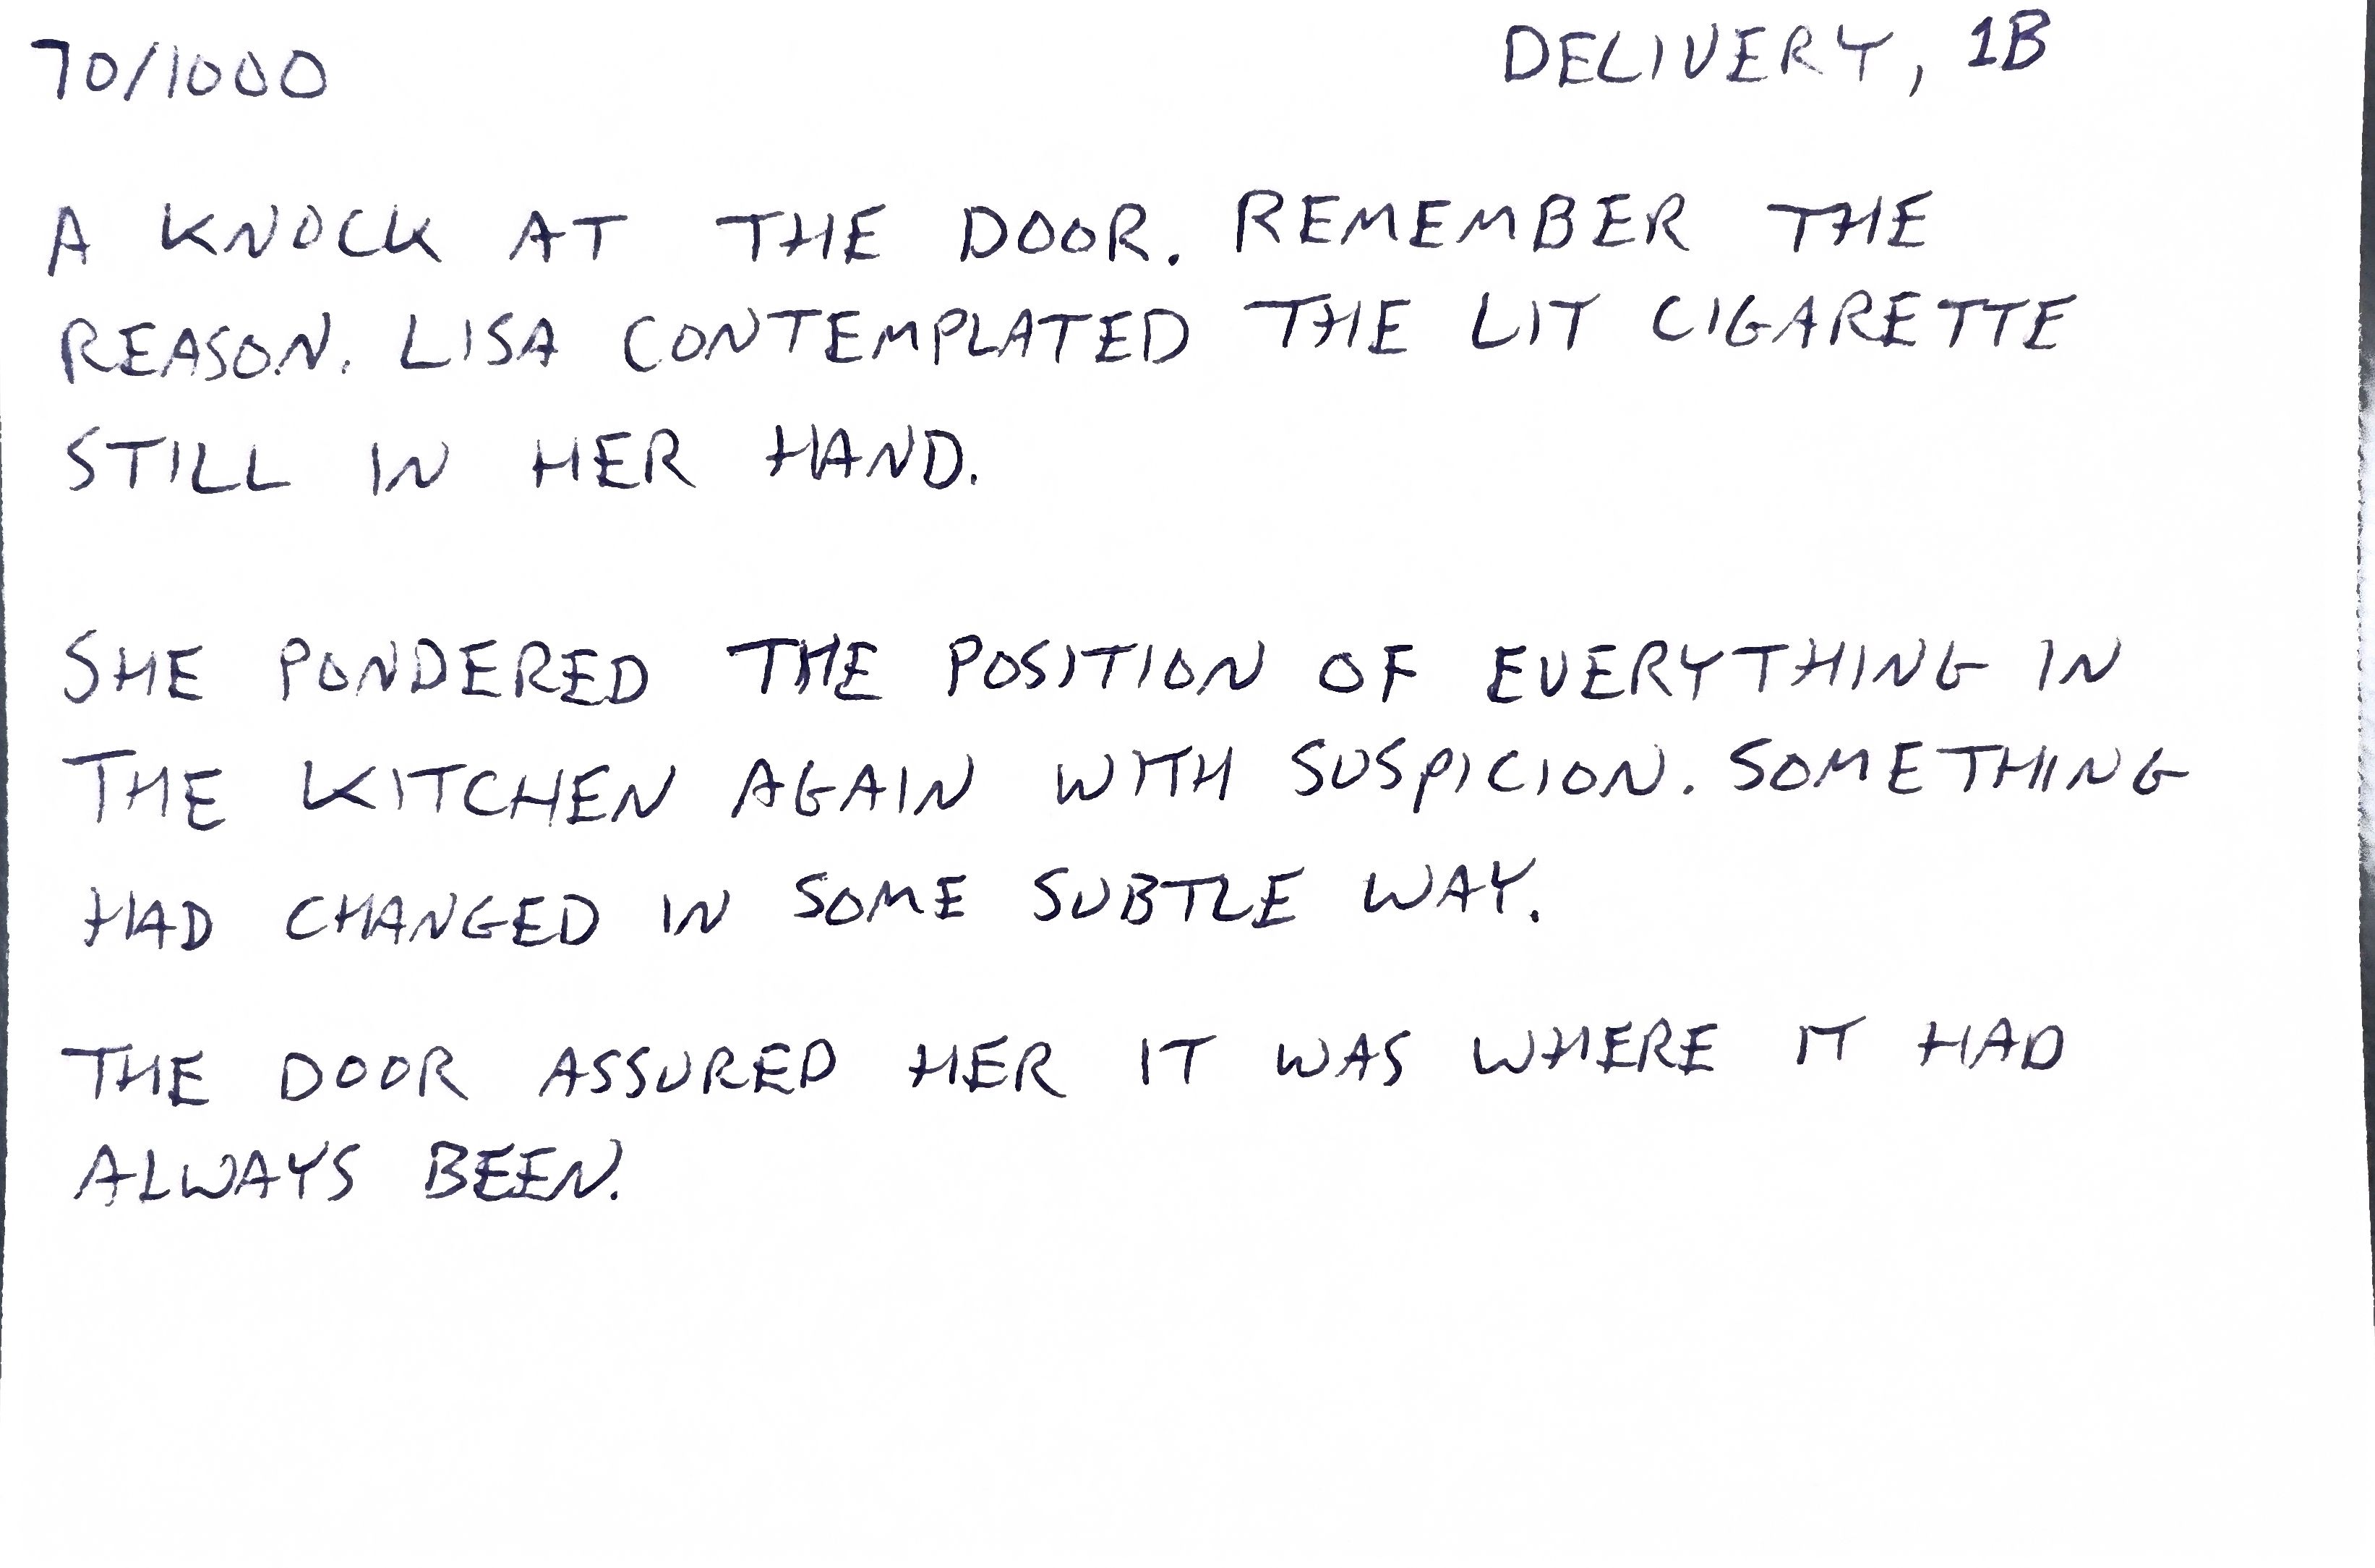 70/1000 DELIVERY, 1B
A KNOCK AT THE DOOR. REMEMBER THE
REASON. LISA CONTEMPLATED THE LIT CIGARETTE
STILL IN HER HAND.
SHE PONDERED THE POSITION OF EVERYTHING IN
THE KITCHEN AGAIN WITH SUSPICION. SOMETHING
HAD CHANGED IN SOME SUBTLE WAY.
THE DOOR ASSURED HER IT WAS WHERE IT HAD
ALWAYS BEEN.